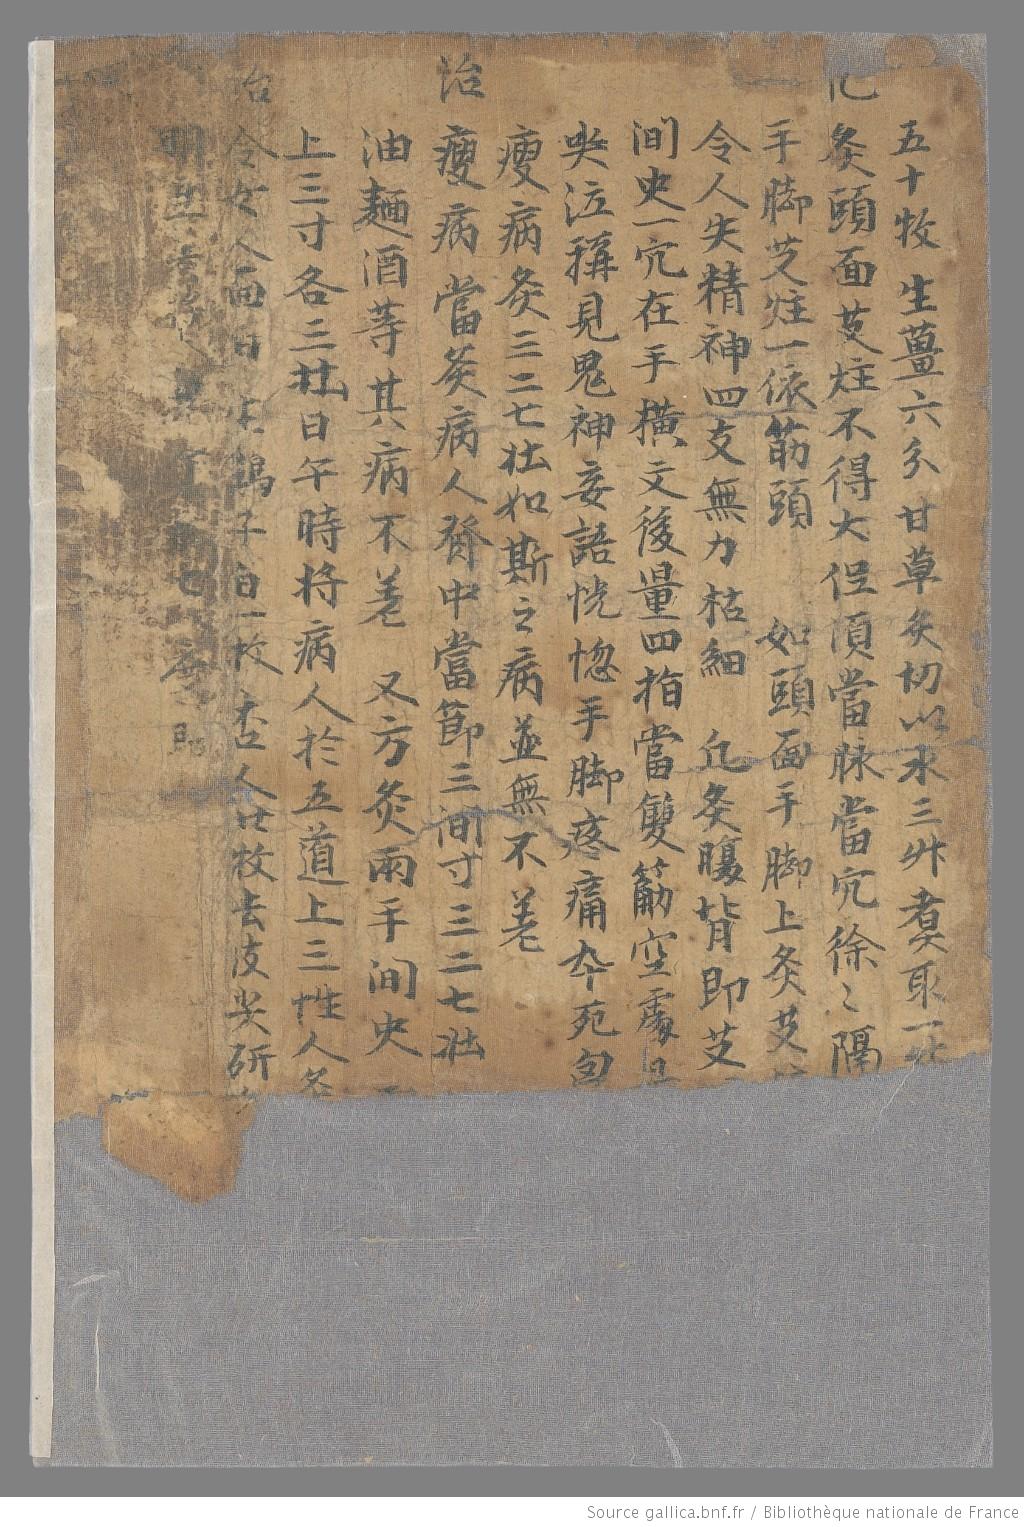 五十牧 生薑六分 甘草炙切 以水三升煮取一升
凡灸頭面艾炷不得大但須當脉當穴徐〻隔
手脚艾炷一依筯頭 如頭面手脚上灸艾
令人失精神四支無力枯細 凡灸腸背即艾
間史一穴在手橫文後量四指當雙觔空處是
哭泣稱見鬼神妄語恍惚手脚疼痛卒死
瘦病灸三二七壮如斯之病並無不差
治瘦病當灸病人臍中當節三間寸三二七壮
油麵酒等其病不差 又方灸兩手間史
上三寸各三壮日午時将病人於五道上三性人灸
治令女人面白 子白一枚 杏人廿牧去皮尖研
明 七 即
Source gallica.bnf.fr / Bibliothèque nationale de France